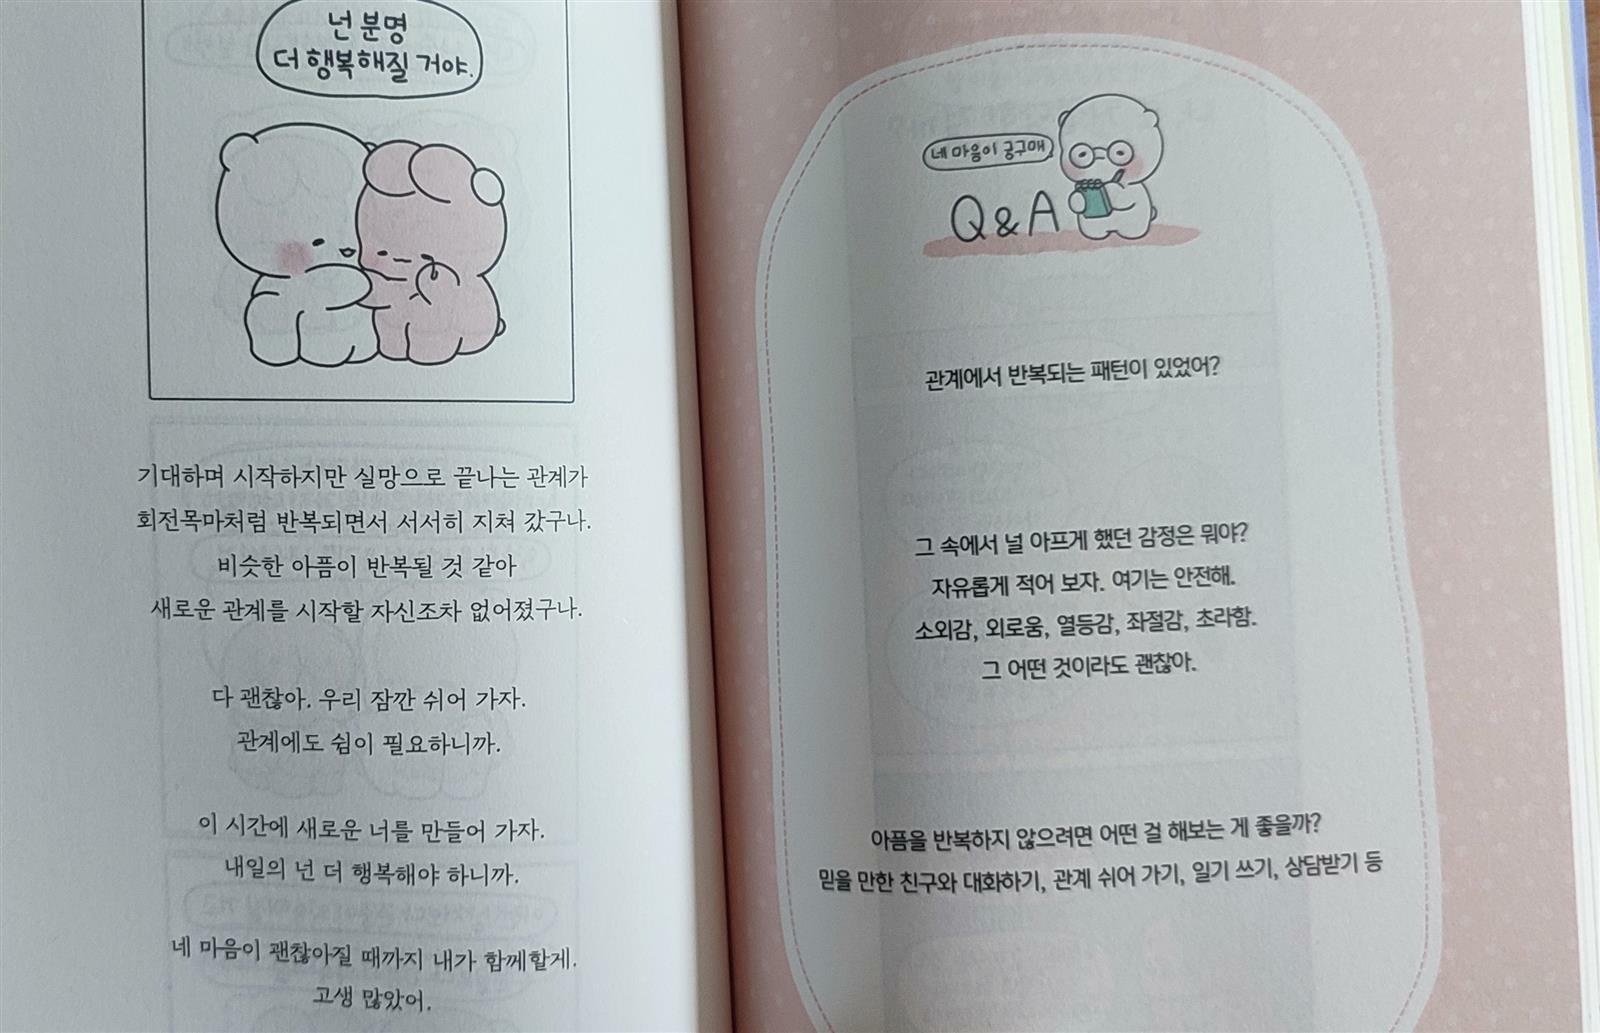 넌 분명
더 행복해질 거야.
기대하며 시작하지만 실망으로 끝나는 관계가
회전목마처럼 반복되면서 서서히 지쳐 갔구나.
비슷한 아픔이 반복될 것 같아
새로운 관계를 시작할 자신조차 없어졌구나.
다 괜찮아. 우리 잠깐 쉬어 가자.
관계에도 쉼이 필요하니까.
이 시간에 새로운 너를 만들어 가자.
내일의 넌 더 행복해야 하니까.
네 마음이 괜찮아질 때까지 내가 함께할게.
고생 많았어.
네 마음이 궁구매
Q&A
관계에서 반복되는 패턴이 있었어?
그 속에서 널 아프게 했던 감정은 뭐야?
자유롭게 적어 보자. 여기는 안전해.
소외감, 외로움, 열등감, 좌절감, 초라함.
그 어떤 것이라도 괜찮아.
아픔을 반복하지 않으려면 어떤 걸 해보는 게 좋을까?
믿을 만한 친구와 대화하기, 관계 쉬어 가기, 일기 쓰기, 상담받기 등